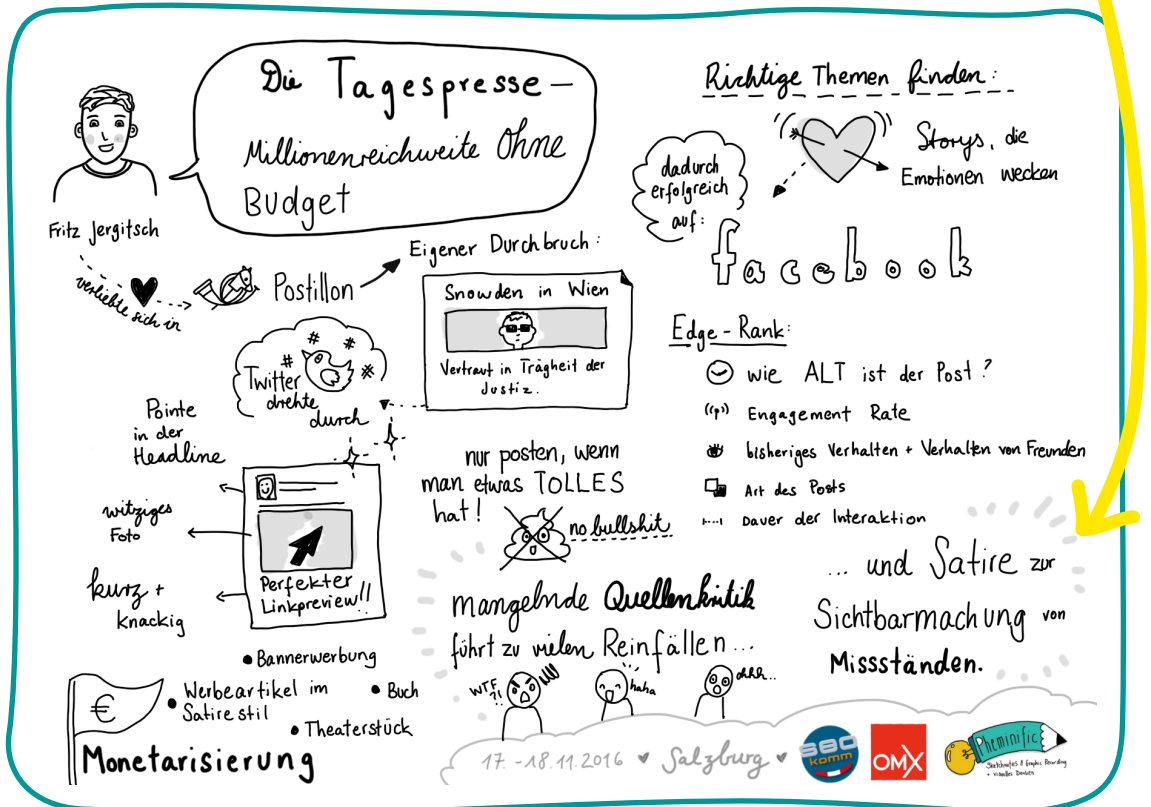 Die Tagespresse –
Millionenreichweite Ohne
Budget
Fritz Jergitsch
verliebte sich in
Postillon
Eigener Durchbruch:
Snowden in Wien
Vertraut in Trägheit der
Justiz.
Twitter
drehte
durch
#
#
#
#
Pointe
in der
Headline
witziges
Foto
kurz +
knackig
Perfekter
Linkpreview!!
nur posten, wenn
man etwas TOLLES
hat!
no bullshit
mangelnde Quellenkritik
führt zu vielen Reinfällen...
WTF
?!
haha
ohhh...
Richtige Themen finden:
Storys, die
Emotionen wecken
dadurch
erfolgreich
auf:
facebook
Edge-Rank:
wie ALT ist der Post?
Engagement Rate
bisheriges Verhalten + Verhalten von Freunden
Art des Posts
Dauer der Interaktion
... und Satire zur
Sichtbarmachung von
Missständen.
€
Monetarisierung
• Bannerwerbung
• Werbeartikel im
Satirestil
• Buch
• Theaterstück
17. - 18.11.2016 ♥ Salzburg ♥
SEO
komm
OMX
Pheminific
Sketchnotes & Graphic Recording
+ visuelles Denken